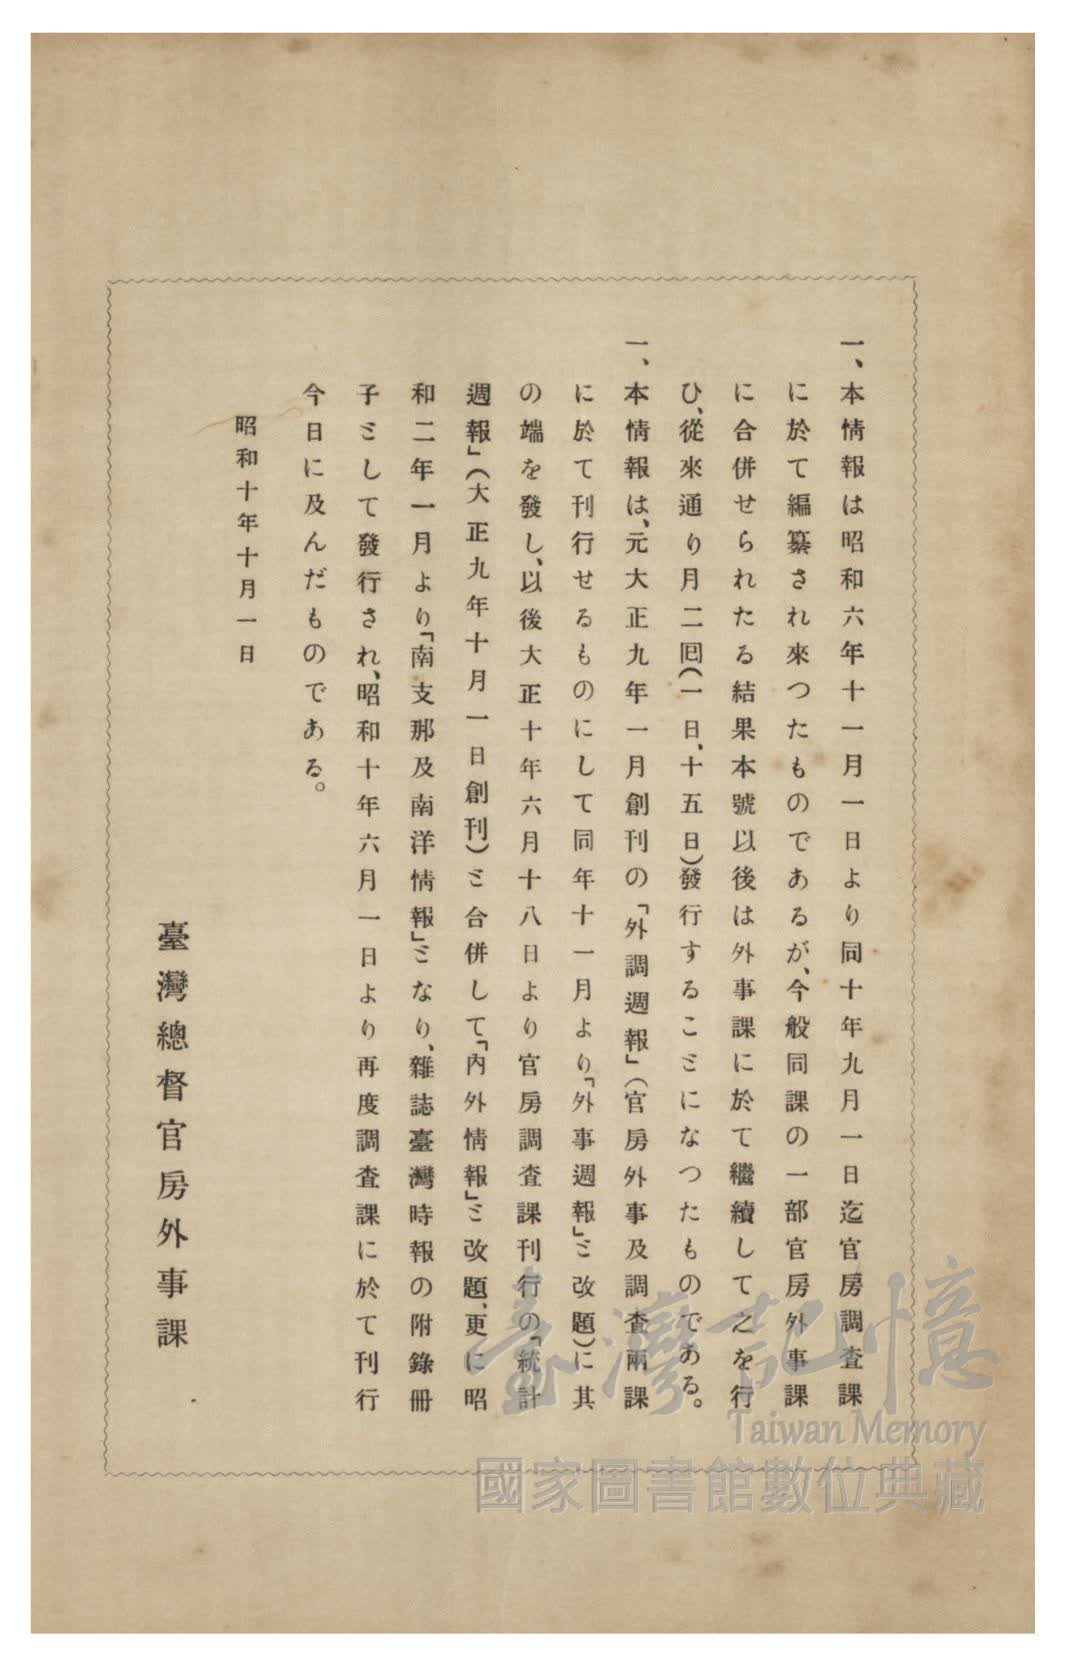 一、本情報は昭和六年十一月一日より同十年九月一日迄官房調査課
に於て編纂され來つたものであるが、今般同課の一部官房外事課
に合併せられたる結果本號以後は外事課に於て繼續して之を行
ひ、從來通り月二回（一日、十五日）發行することになつたものである。
一、本情報は、元大正九年一月創刊の「外調週報」（官房外事及調査兩課
に於て刊行せるものにして同年十一月より「外事週報」と改題）に其
の端を發し、以後大正十年六月十八日より官房調査課刊行の「統計
週報」（大正九年十月一日創刊）と合併して、「內外情報」と改題、更に昭
和二年一月より「南支那及南洋情報」となり、雜誌臺灣時報の附錄冊
子として發行され、昭和十年六月一日より再度調査課に於て刊行
今日に及んだものである。
昭和十年十月一日
臺灣總督官房外事課
臺灣記憶
Taiwan Memory
國家圖書館數位典藏